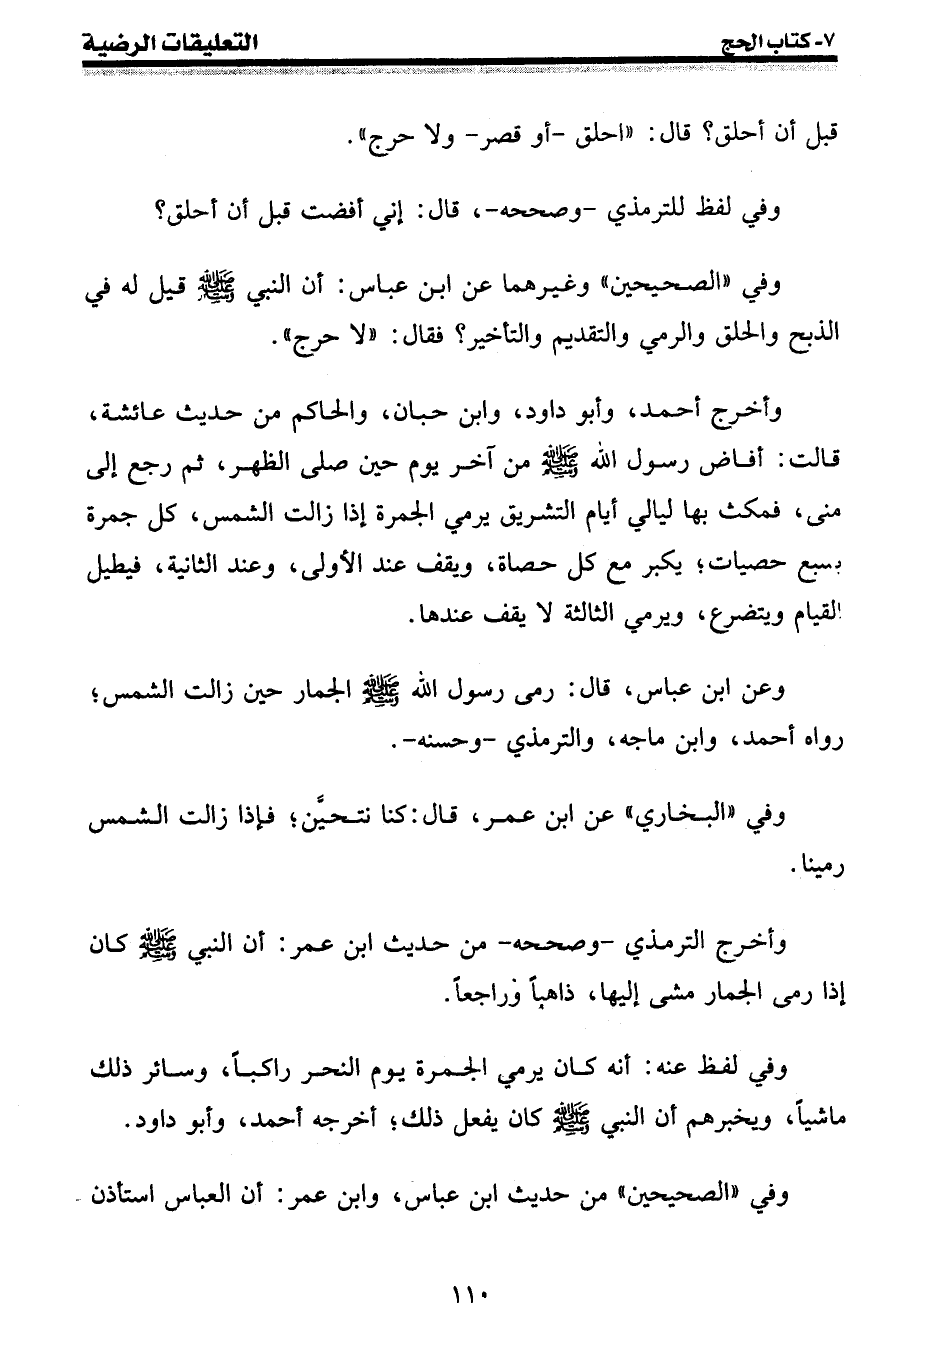 ٧- كتاب الحج
التعليقات الرضية
قبل أن أحلق؟ قال: «احلق -أو قصر- ولا حرج».
وفي لفظ للترمذي -وصححه-، قال: إني أفضت قبل أن أحلق؟
وفي «الصحيحين» وغيرهما عن ابن عباس: أن النبي ﷺ قيل له في
الذبح والحلق والرمي والتقديم والتأخير؟ فقال: «لا حرج».
وأخرج أحمد، وأبو داود، وابن حبان، والحاكم من حديث عائشة،
قالت: أفاض رسول الله ﷺ من آخر يوم حين صلى الظهر، ثم رجع إلى
منى، فمكث بها ليالي أيام التشريق يرمي الجمرة إذا زالت الشمس، كل جمرة
بسبع حصيات؛ يكبر مع كل حصاة، ويقف عند الأولى، وعند الثانية، فيطيل
القيام ويتضرع، ويرمي الثالثة لا يقف عندها.
وعن ابن عباس، قال: رمى رسول الله ﷺ الجمار حين زالت الشمس؛
رواه أحمد، وابن ماجه، والترمذي -وحسنه-.
وفي «البخاري» عن ابن عمر، قال: كنا نتحيَّن؛ فإذا زالت الشمس
رمينا.
وأخرج الترمذي -وصححه- من حديث ابن عمر: أن النبي ﷺ كان
إذا رمى الجمار مشى إليها، ذاهباً وراجعاً.
وفي لفظ عنه: أنه كان يرمي الجمرة يوم النحر راكباً، وسائر ذلك
ماشياً، ويخبرهم أن النبي ﷺ كان يفعل ذلك؛ أخرجه أحمد، وأبو داود.
وفي «الصحيحين» من حديث ابن عباس، وابن عمر: أن العباس استأذن
١١٠